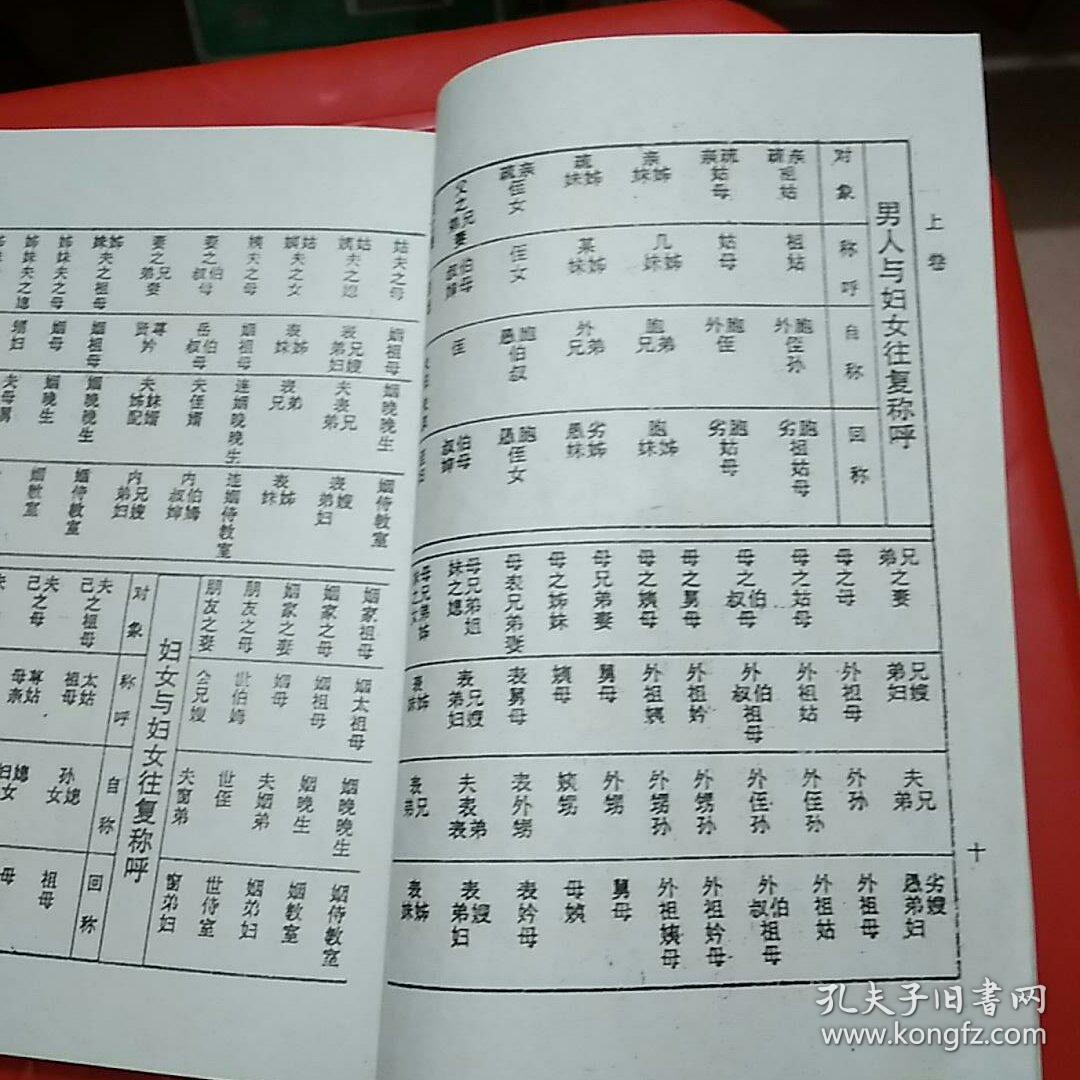 上卷
男人与妇女往复称呼
对象 称呼 自称 回称
亲疏祖姑 祖姑 胞外侄孙 胞劣祖姑母
亲疏姑母 姑母 胞外侄 胞劣姑母
亲姊妹 几姊妹 胞兄弟 胞姊妹
疏姊妹 某姊妹 外兄弟 劣愚姊妹
亲疏侄女 侄女 胞愚伯叔 胞愚侄女
父之兄弟妻 伯叔母婶 侄 伯叔母婶
兄弟之妻 兄弟嫂妇 夫兄弟 劣愚嫂弟妇
母之母 外祖母 外孙 外祖母
母之姑母 外祖姑 外侄孙 外祖姑
母之伯叔母 外伯叔祖母 外侄孙 外伯叔祖母
母之舅母 外祖妗 外甥孙 外祖妗母
母之姨母 外祖姨 外甥孙 外祖姨母
母兄弟妻 舅母 外甥 舅母
母之姊妹 姨母 姨甥 母姨
母表兄弟妻 表舅母 表外甥 表妗母
母兄弟姐妹之媳 表兄弟嫂妇 夫表表弟 表嫂弟妇
表姊妹 表兄弟 表姊妹
十
姑夫之母 姻祖母 姻晚生 姻侍教室
姑姨夫之媳 表兄弟嫂妇 夫表兄弟 表嫂弟妇
姑姨夫之女 表姊妹 表兄弟 表姊妹
姨夫之母 姻祖母 连姻晚晚生 连姻侍教室
妻之伯叔母 岳伯叔母 夫侄婿 内伯叔姆婶
妻之兄弟妻 尊贤妗 夫姊妹婿配 内兄弟嫂妇
姊妹夫之祖母 姻祖母 姻晚晚生 姻侍教室
姊妹夫之母 姻母 姻晚生 姻教室
姊妹夫之媳
姻家祖母 姻太祖母 姻晚晚生 姻侍教室
姻家之母 姻祖母 姻晚生 姻教室
姻家之妻 姻母 夫姻弟 姻弟妇
朋友之母 世伯姆 世侄 世侍室
朋友之妻 仝兄嫂 夫窗弟 窗弟妇
妇女与妇女往复称呼
对象 称呼 自称 回称
夫己之祖母 太姑祖母 孙媳女 祖母
夫己之母 尊姑母亲 媳女 母
孔夫子旧書网
www.kongfz.com